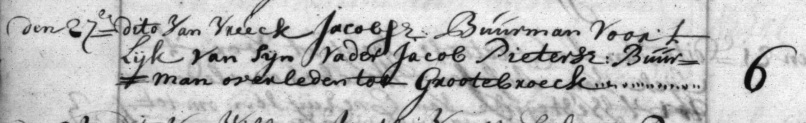 den 27e dito Van Vreeck Jacobsz: Buurman Voor 't
Lijk Van Syn Vader Jacob Pietersz: Buur=
=man overleden tot Grootebroeck 6